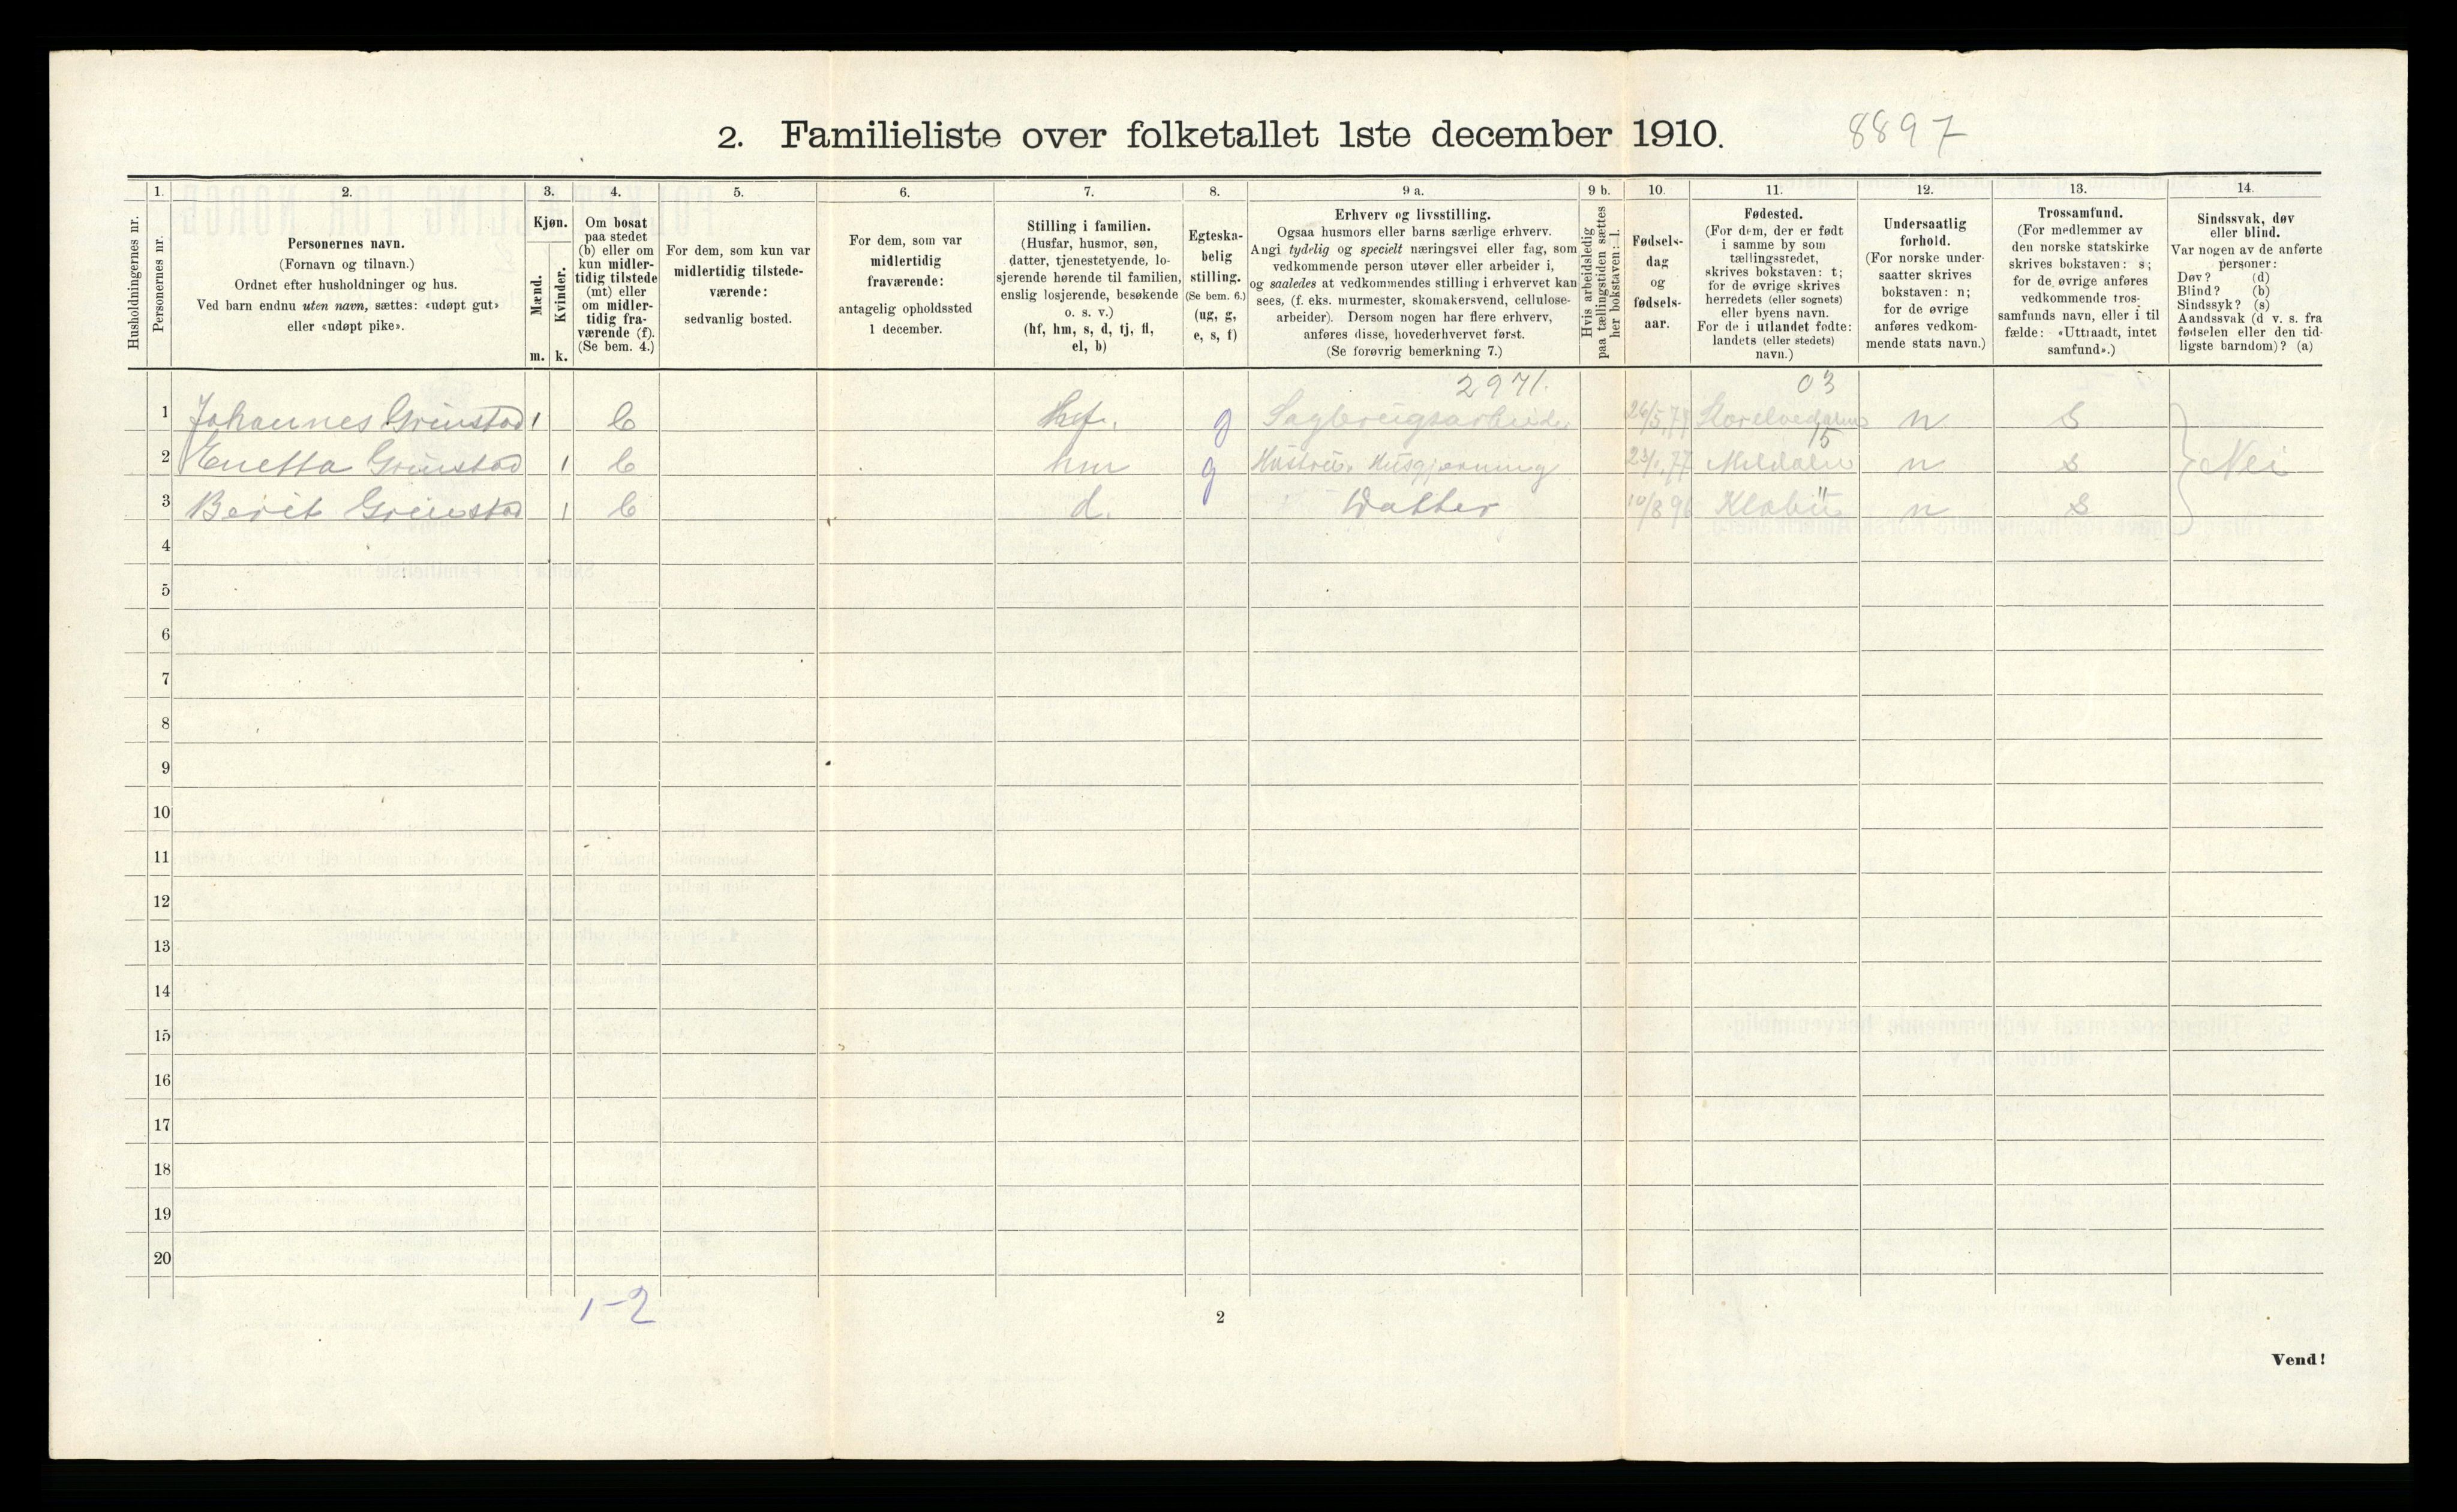 2. Familieliste over folketallet 1ste december 1910. 8897
Husholdningernes nr.
1.
Personernes nr.
2.
Personernes navn.
(Fornavn og tilnavn.)
Ordnet efter husholdninger og hus.
Ved barn endnu uten navn, sættes: «udøpt gut»
eller «udøpt pike».
3.
Kjøn.
Mænd.
Kvinder.
m. k.
4.
Om bosat
paa stedet
(b) eller om
kun midler-
tidig tilstede
(mt) eller
om midler-
tidig fra-
værende (f).
(Se bem. 4.)
5.
For dem, som kun var
midlertidig tilstede-
værende:
sedvanlig bosted.
6.
For dem, som var
midlertidig
fraværende:
antagelig opholdssted
1 december.
7.
Stilling i familien.
(Husfar, husmor, søn,
datter, tjenestetyende, lo-
sjerende hørende til familien,
enslig losjerende, besøkende
o. s. v.)
(hf, hm, s, d, tj, fl,
el, b)
8.
Egteska-
belig
stilling.
(Se bem. 6.)
(ug, g,
e, s, f)
9 a.
Erhverv og livsstilling.
Ogsaa husmors eller barns særlige erhverv.
Angi tydelig og specielt næringsvei eller fag, som
vedkommende person utøver eller arbeider i,
og saaledes at vedkommendes stilling i erhvervet kan
sees, (f. eks. murmester, skomakersvend, cellulose-
arbeider). Dersom nogen har flere erhverv,
anføres disse, hovederhvervet først.
(Se forøvrig bemerkning 7.)
9 b.
Hvis arbeidsledig
paa tællingstiden sættes
her bokstaven: l.
10.
Fødsels-
dag
og
fødsels-
aar.
11.
Fødested.
(For dem, der er født
i samme by som
tællingsstedet,
skrives bokstaven: t;
for de øvrige skrives
herredets (eller sognets)
eller byens navn.
For de i utlandet fødte:
landets (eller stedets)
navn.)
12.
Undersaatlig
forhold.
(For norske under-
saatter skrives
bokstaven: n;
for de øvrige
anføres vedkom-
mende stats navn.)
13.
Trossamfund.
(For medlemmer av
den norske statskirke
skrives bokstaven: s;
for de øvrige anføres
vedkommende tros-
samfunds navn, eller i til
fælde: «Uttraadt, intet
samfund».)
14.
Sindssvak, døv
eller blind.
Var nogen av de anførte
personer:
Døv? (d)
Blind? (b)
Sindssyk? (s)
Aandssvak (d v. s. fra
fødselen eller den tid-
ligste barndom)? (a)
2971. 03
1 Johannes Grinstad 1 b hf. g Sagbrugsarbeid. n s
15
2 Grinstad 1 b hm g Hustru, Husgjerning n s Nei
11
3 Berit Grinstad 1 b d. Datter 10/8 Klæbu n s
4
5
6
7
8
9
10
11
12
13
14
15
16
17
18
19
20
1-2
2
Vend!